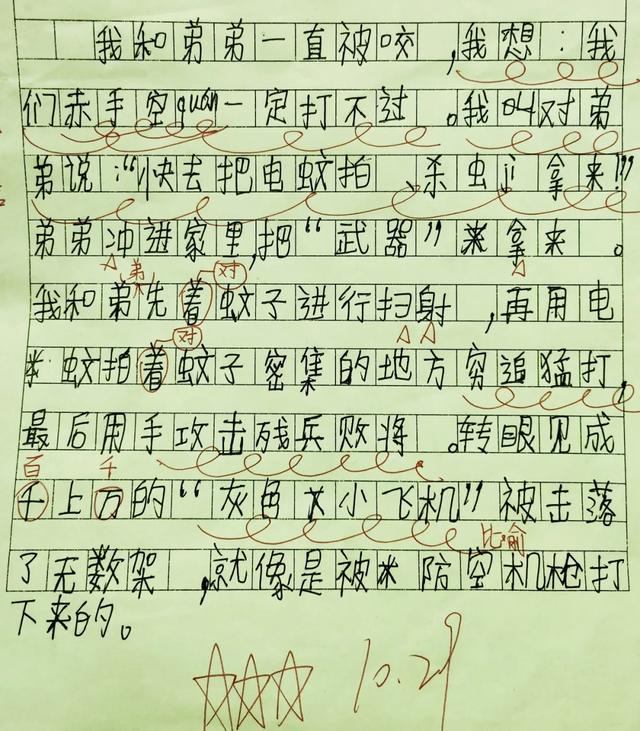 我和弟弟一直被咬,我想:我
们赤手空quán一定打不过。我叫对弟
弟说:“快去把电蚊拍、杀虫jì拿来!”
弟弟冲进家里,把“武器”来拿来。
弟 对
我和弟先着蚊子进行扫射,再用电
对
蚊拍着蚊子密集的地方穷追猛打,
最后用手攻击残兵败将。转眼见成
百 千
千上万的“灰色小飞机”被击落
比喻
了无数架,就像是被防空机枪打
下来的。
10.29